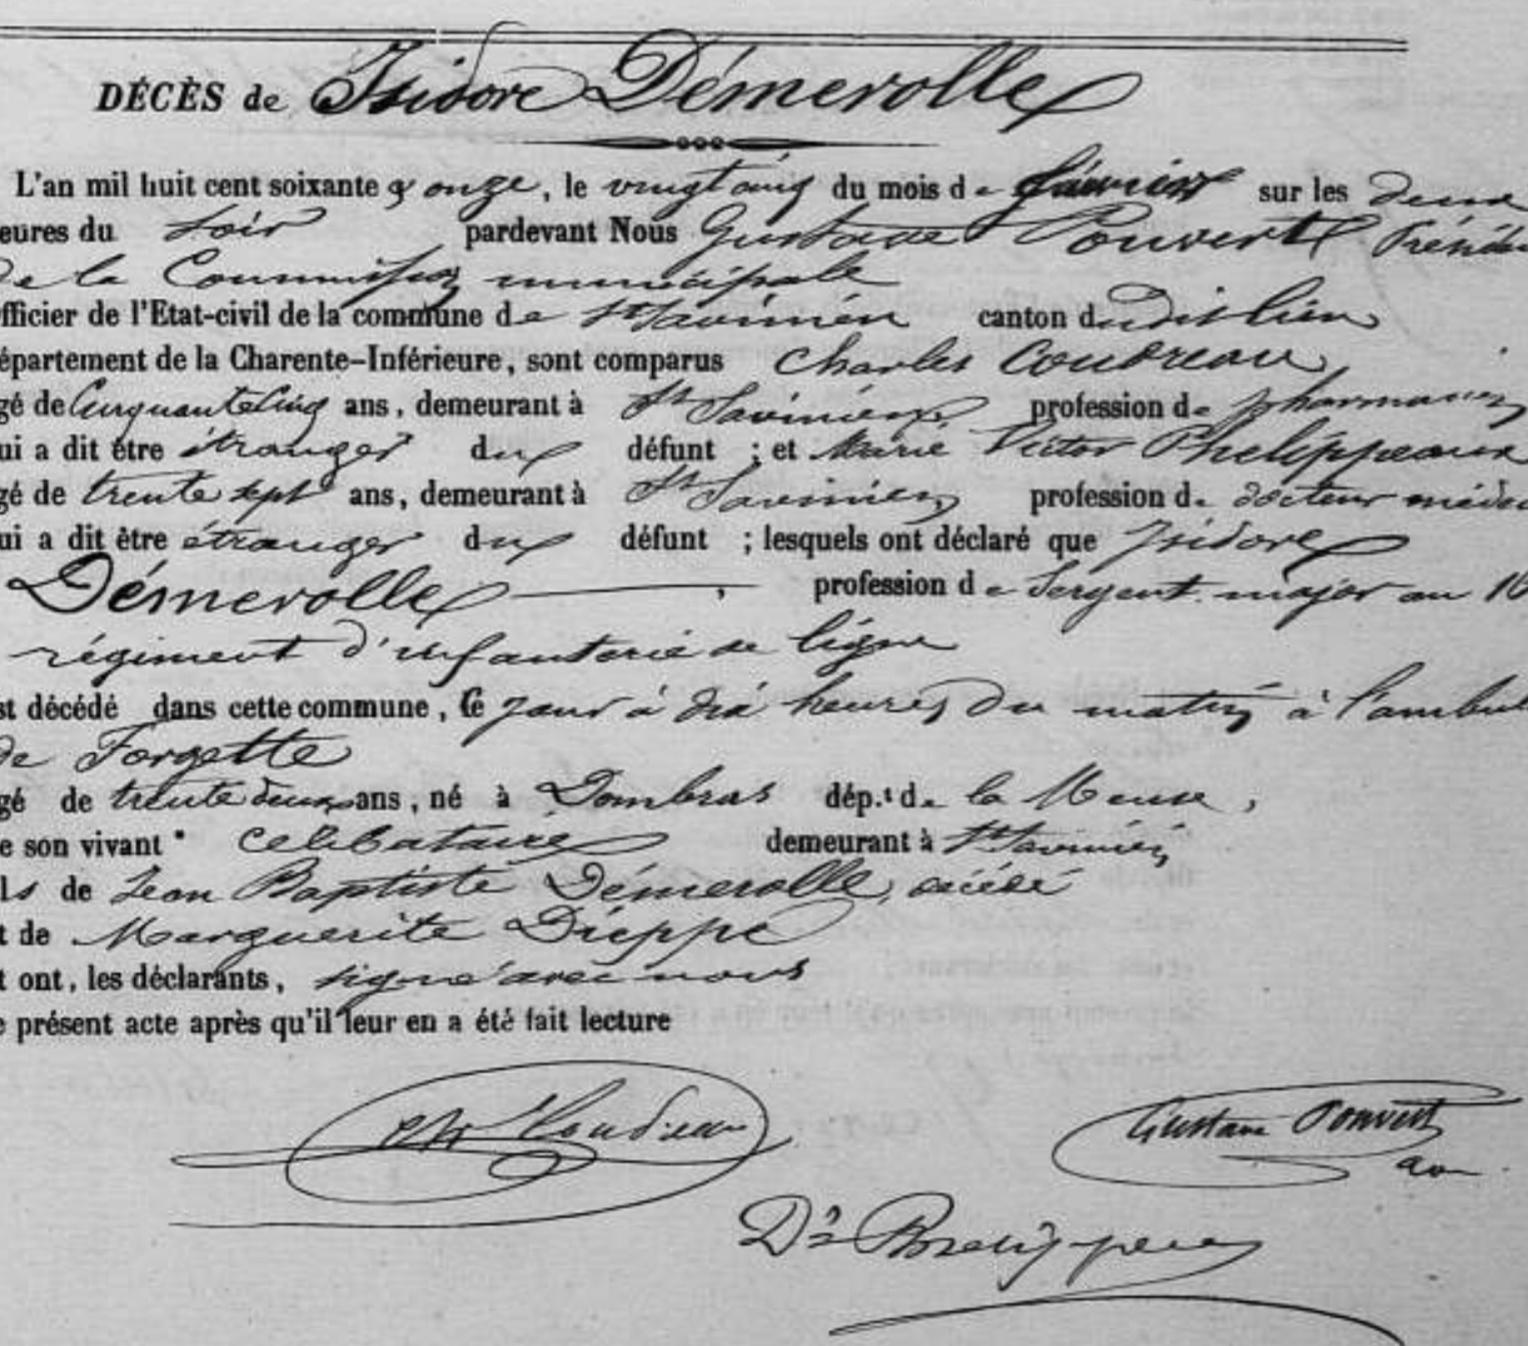 DÉCÈS de Isidore Démerolle
L'an mil huit cent soixante & onze, le vingt cinq du mois de sur les deux
eures du soir pardevant Nous Gustave Pouvert Présiden
de la Commission municipale
fficier de l'Etat-civil de la commune de St Savinien canton du dit lieu
épartement de la Charente-Inférieure, sont comparus Charles Coudreau
gé de Cinquante cinq ans, demeurant à St Savinien profession de pharmacien
ui a dit être étranger du défunt ; et Marie Victor Phelippeaux
gé de trente sept ans, demeurant à St Savinien profession de docteur médec
ui a dit être étranger du défunt ; lesquels ont déclaré que Isidore
Démerolle , profession de Sergent major au 16
régiment d'infanterie de ligne
st décédé dans cette commune, ce jour à dix heures du matin à l'ambul
de Forgette
gé de trente deux ans, né à Dombras dép.t de la Meuse,
e son vivant célibataire demeurant à St Savinien
ls de Jean Baptiste Démerolle, décédé
t de Marguerite Dieppe
t ont, les déclarants, signé avec nous
e présent acte après qu'il leur en a été fait lecture
Coudreau
Gustave Pouvert
Dr Phelippeaux